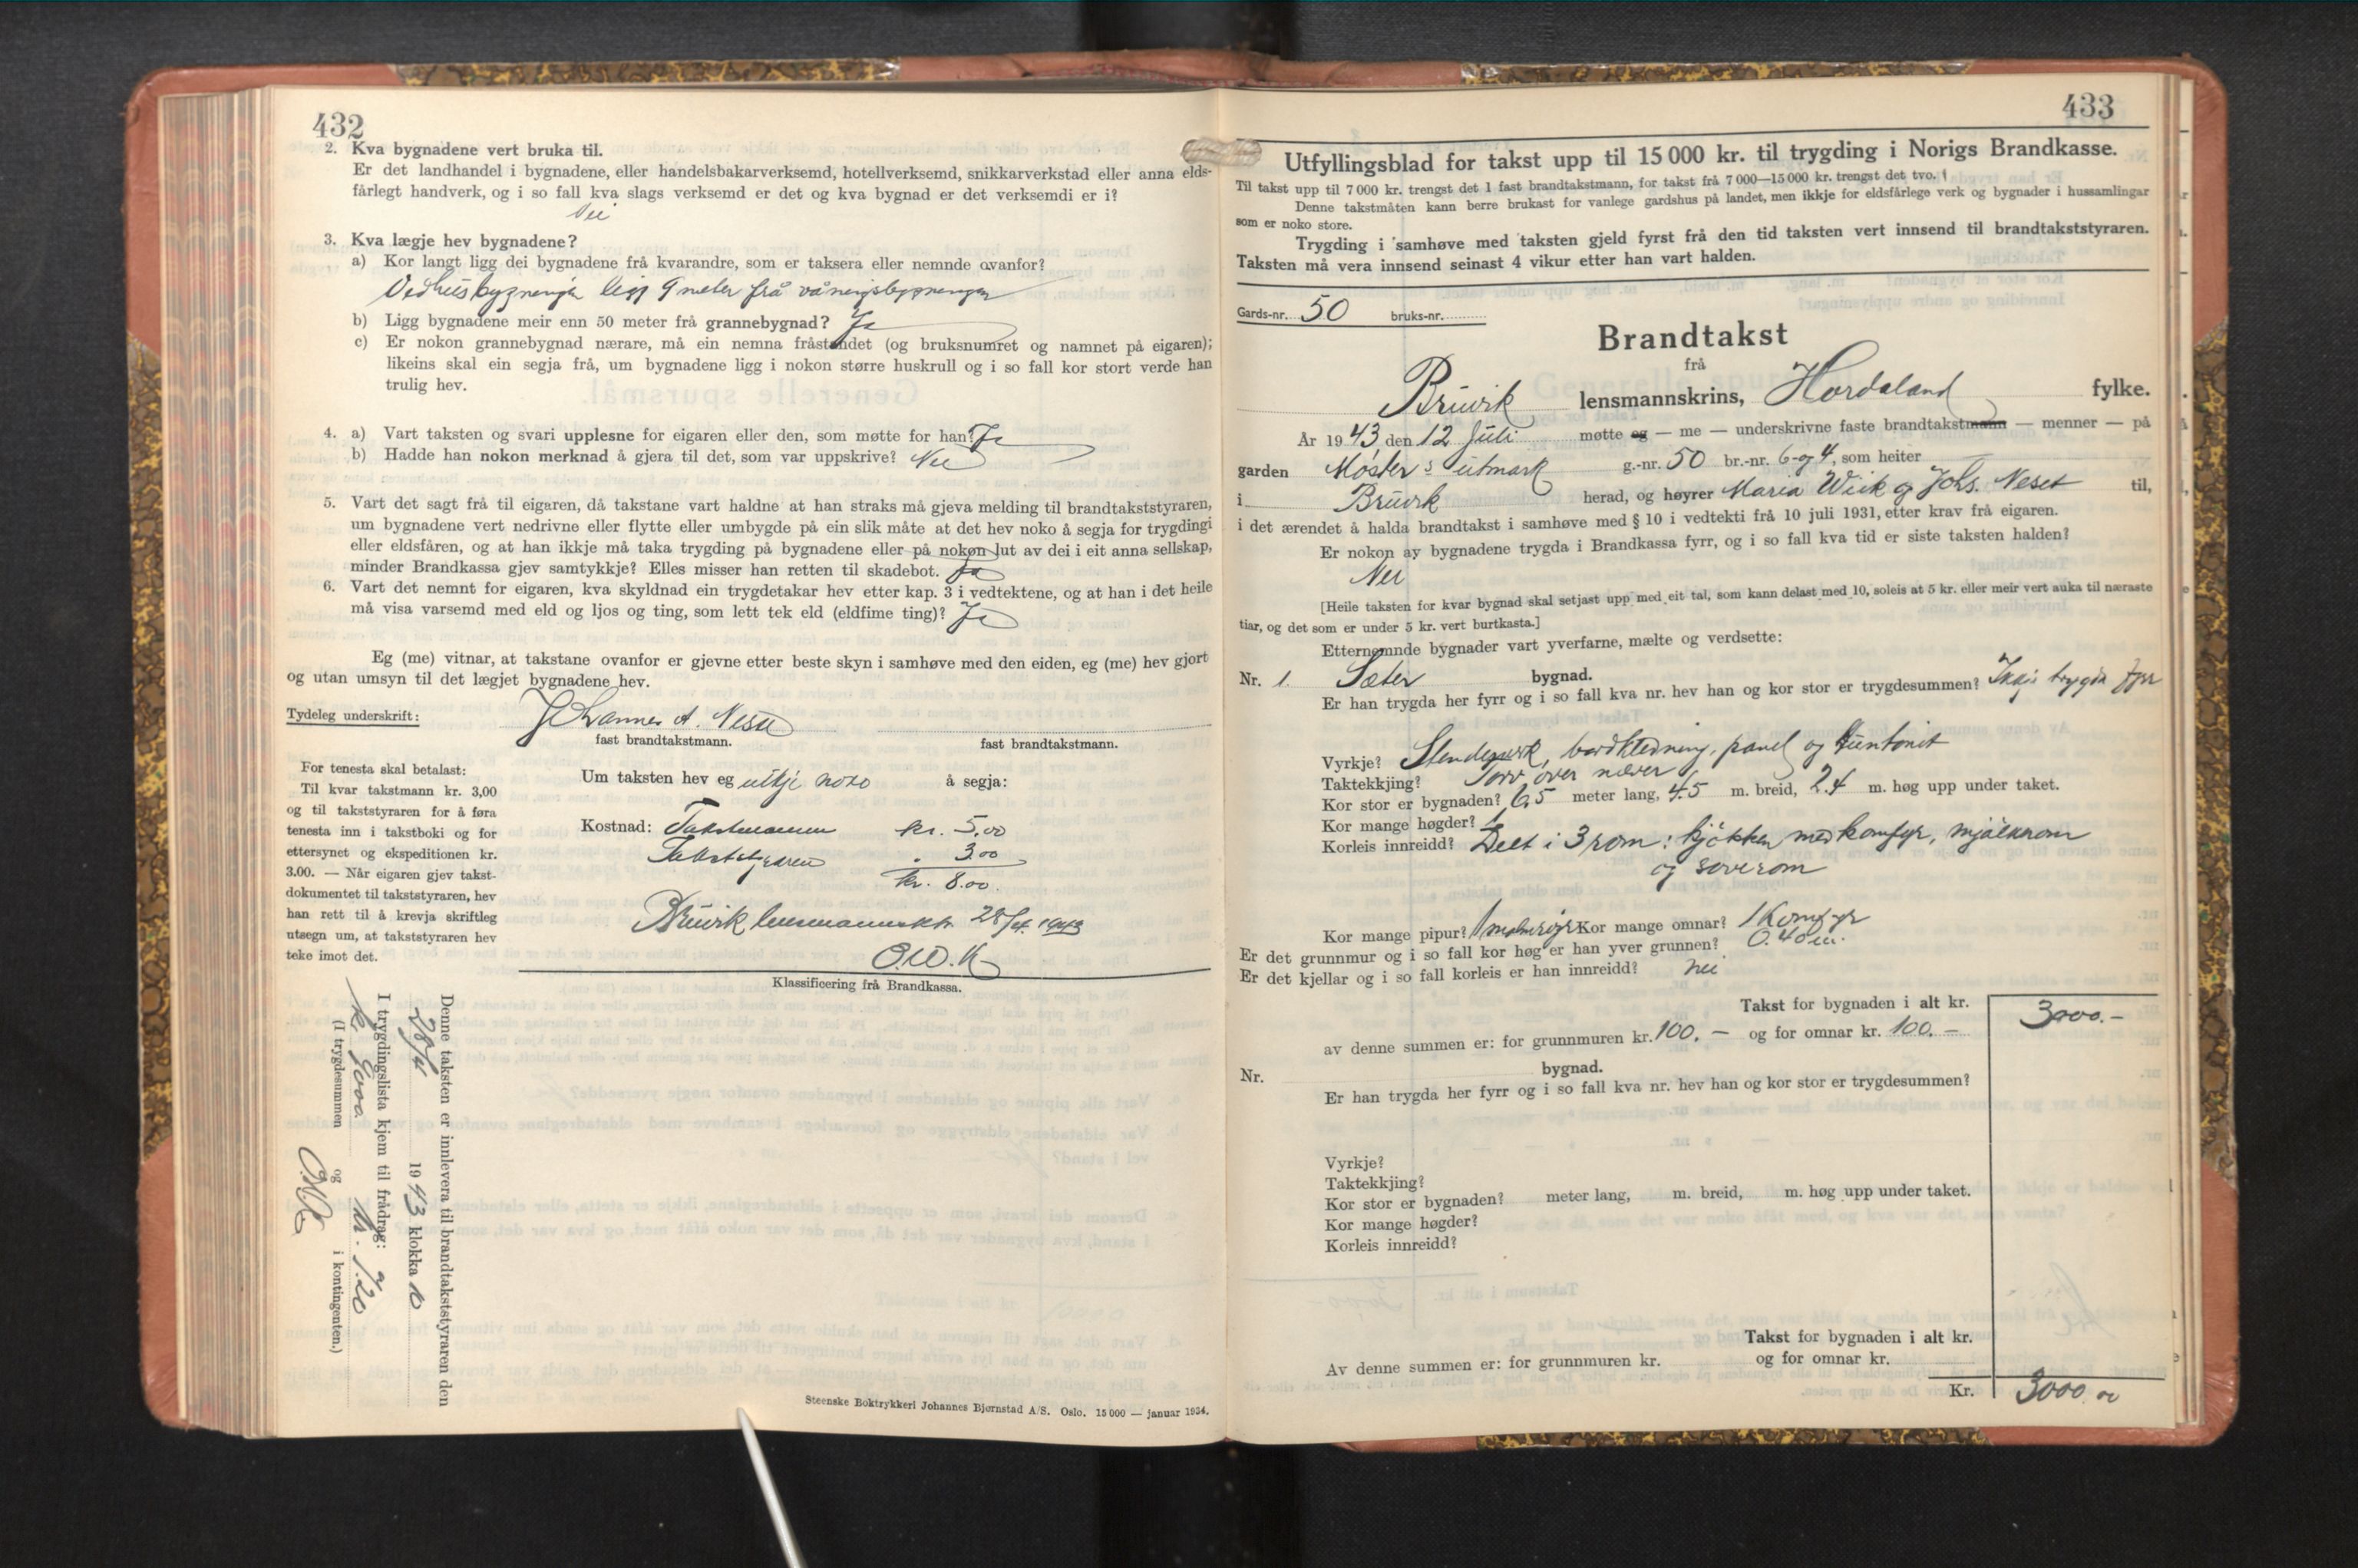 432
2. Kva bygnadene vert bruka til.
Er det landhandel i bygnadene, eller handelsbakarverksemd, hotellverksemd, snikkarverkstad eller anna elds-
fårlegt handverk, og i so fall kva slags verksemd er det og kva bygnad er det verksemdi er i?
Nei
3. Kva lægje hev bygnadene?
a) Kor langt ligg dei bygnadene frå kvarandre, som er taksera eller nemnde ovanfor?
Vedhusbygnengen ligg 9 meter frå våningsbygnengen
b) Ligg bygnadene meir enn 50 meter frå grannebygnad? Ja
c) Er nokon grannebygnad nærare, må ein nemna fråstandet (og bruksnumret og namnet på eigaren);
likeins skal ein segja frå, um bygnadene ligg i nokon større huskrull og i so fall kor stort verde han
trulig hev.
4. a) Vart taksten og svari upplesne for eigaren eller den, som møtte for han? Ja
b) Hadde han nokon merknad å gjera til det, som var uppskrive? Nei
5. Vart det sagt frå til eigaren, då takstane vart haldne at han straks må gjeva melding til brandtakststyraren,
um bygnadene vert nedrivne eller flytte eller umbygde på ein slik måte at det hev noko å segja for trygdingi
eller eldsfåren, og at han ikkje må taka trygding på bygnadene eller på nokon lut av dei i eit anna sellskap,
minder Brandkassa gjev samtykkje? Elles misser han retten til skadebot. Ja
6. Vart det nemnt for eigaren, kva skyldnad ein trygdetakar hev etter kap. 3 i vedtektene, og at han i det heile
må visa varsemd med eld og ljos og ting, som lett tek eld (eldfime ting)? Ja
Eg (me) vitnar, at takstane ovanfor er gjevne etter beste skyn i samhøve med den eiden, eg (me) hev gjort
og utan umsyn til det lægjet bygnadene hev.
Tydeleg underskrift: Johannes A. Nese
fast brandtakstmann. fast brandtakstmann.
For tenesta skal betalast:
Til kvar takstmann kr. 3,00
og til takststyraren for å føra
tenesta inn i takstboki og for
ettersynet og ekspeditionen kr.
3.00. — Når eigaren gjev takst-
dokumentet til takststyraren, hev
han rett til å krevja skriftleg
utsegn um, at takststyraren hev
teke imot det.
Um taksten hev eg ikkje noko å segja:
Kostnad: Takstmannen kr. 5,00
Takststyraren " 3.00
kr. 8.00.
Bruvik lensmannsktr. 1943
O.W.K
Klassificering frå Brandkassa.
Denne taksten er innlevera til brandtakststyraren den
1943 klokka 10
I trygdingslista kjem til frådrag:
(I trygdesummen og i kontingenten.)
Steenske Boktrykkeri Johannes Bjørnstad A/S. Oslo. 15 000 — januar 1934.
433
Utfyllingsblad for takst upp til 15 000 kr. til trygding i Norigs Brandkasse.
Til takst upp til 7 000 kr. trengst det 1 fast brandtakstmann, for takst frå 7 000—15 000 kr. trengst det tvo.
Denne takstmåten kann berre brukast for vanlege gardshus på landet, men ikkje for eldsfårlege verk og bygnader i hussamlingar
som er noko store.
Trygding i samhøve med taksten gjeld fyrst frå den tid taksten vert innsend til brandtakststyraren.
Taksten må vera innsend seinast 4 vikur etter han vart halden.
Gards-nr. 50 bruks-nr.
Brandtakst
frå
Bruvik lensmannskrins, Hordaland fylke.
År 1943 den 12 Juli møtte eg — me — underskrivne faste brandtakstmann — menner — på
garden Møster s utmark g.-nr. 50 br.-nr. 6 og 4, som heiter
i Bruvik herad, og høyrer Maria Wiik og Johs. Neset til,
i det ærendet å halda brandtakst i samhøve med § 10 i vedtekti frå 10 juli 1931, etter krav frå eigaren.
Er nokon av bygnadene trygda i Brandkassa fyrr, og i so fall kva tid er siste taksten halden?
Nei
[Heile taksten for kvar bygnad skal setjast upp med eit tal, som kann delast med 10, soleis at 5 kr. eller meir vert auka til næraste
tiar, og det som er under 5 kr. vert burtkasta.]
Etternemnde bygnader vart yverfarne, mælte og verdsette:
Nr. 1 Sæter bygnad.
Er han trygda her fyrr og i so fall kva nr. hev han og kor stor er trygdesummen? Ikkje trygda fyrr
Vyrkje? Stenderverk, bordkledning, panel og Huntonit
Taktekkjing? Torv over never
Kor stor er bygnaden? 6,5 meter lang, 4.5 m. breid, 2.4 m. høg upp under taket.
Kor mange høgder? 1
Korleis innreidd? Delt i 3 rom: kjøkken med komfyr, mjølkerom
og soverom
Kor mange pipur? 1 Kor mange omnar? 1 Komfyr
Er det grunnmur og i so fall kor høg er han yver grunnen? 0.40 m.
Er det kjellar og i so fall korleis er han innreidd? nei
Takst for bygnaden i alt kr. 3000.-
av denne summen er: for grunnmuren kr. 100.— og for omnar kr. 100.—
Nr. bygnad.
Er han trygda her fyrr og i so fall kva nr. hev han og kor stor er trygdesummen?
Vyrkje?
Taktekkjing?
Kor stor er bygnaden? meter lang, m. breid, m. høg upp under taket.
Kor mange høgder?
Korleis innreidd?
Takst for bygnaden i alt kr.
Av denne summen er: for grunnmuren kr. og for omnar kr.
Kr. 3000.00